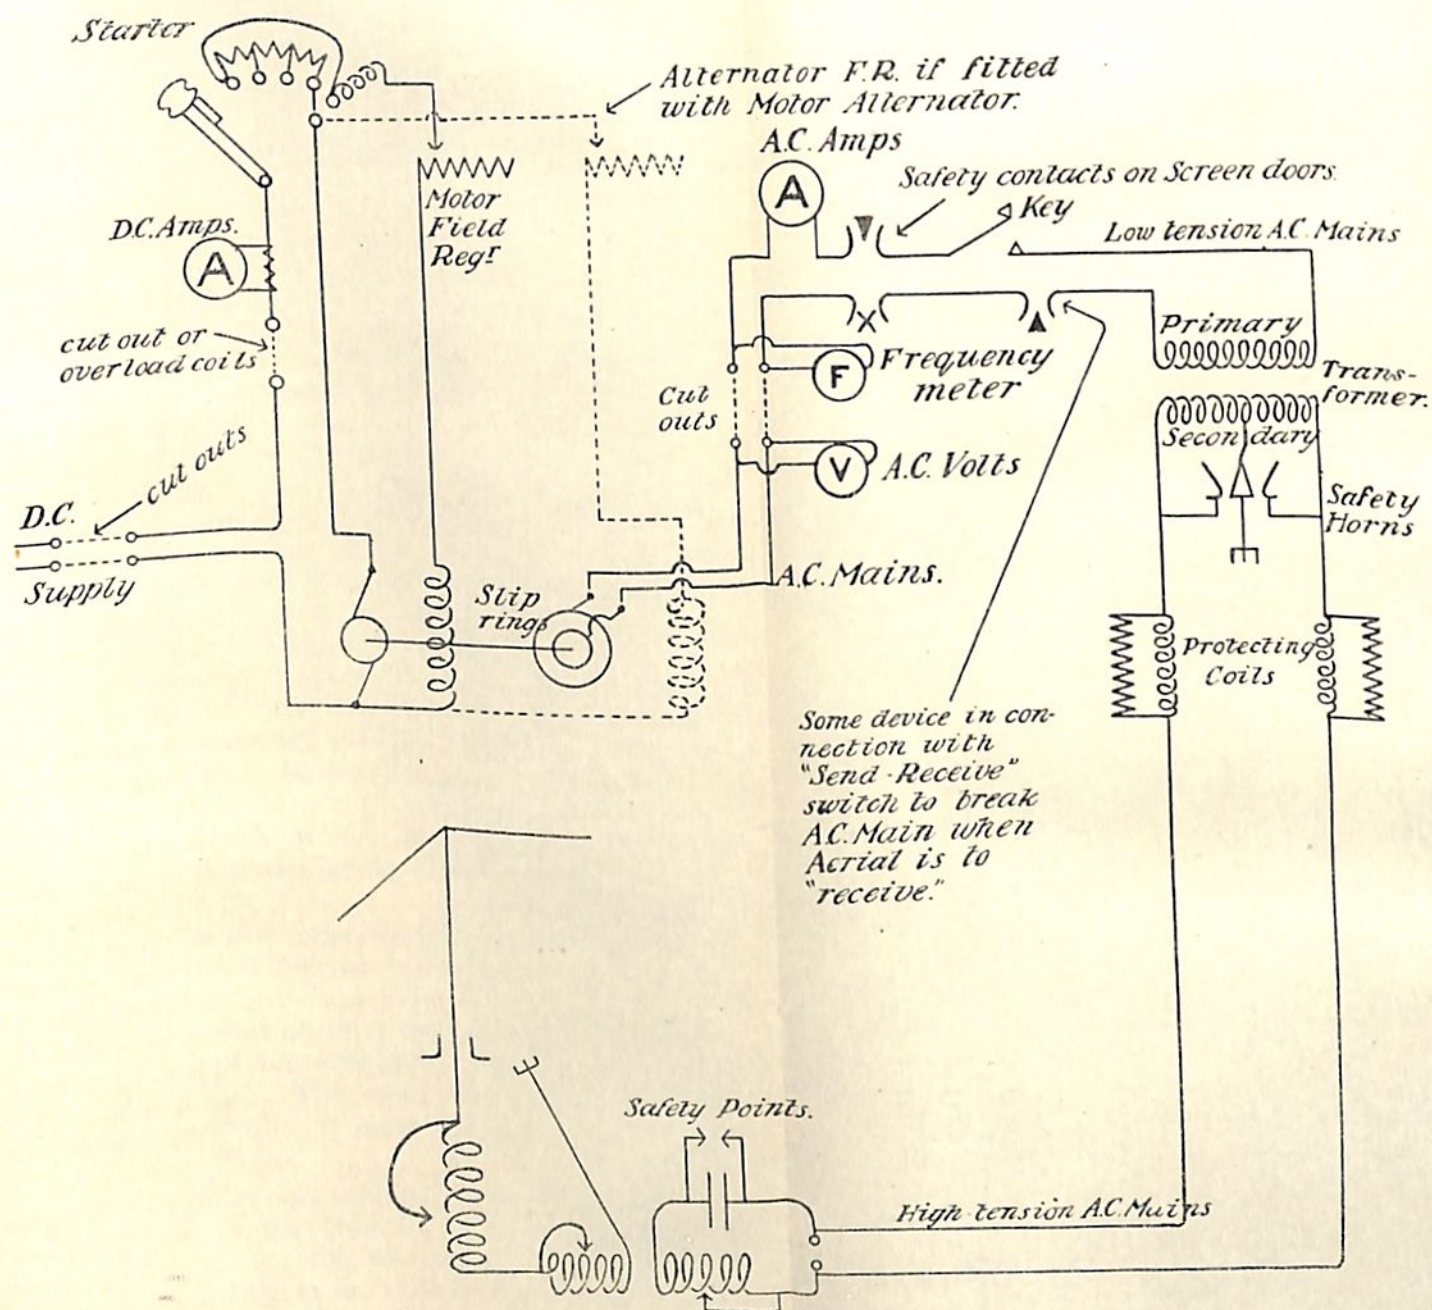 Starter
Alternator F.R. if fitted
with Motor Alternator.
A.C. Amps
A
Safety contacts on Screen doors.
Key
Low tension A.C. Mains
D.C. Amps.
A
Motor
Field
Regr
cut out or
overload coils
Primary
Frequency
meter
F
Cut
outs
Trans-
former.
Secondary
V
A.C. Volts
cut outs
D.C.
Supply
Safety
Horns
A.C. Mains.
Slip
rings
Protecting
Coils
Some device in con-
nection with
"Send-Receive"
switch to break
A.C. Main when
Aerial is to
"receive."
Safety Points.
High tension A.C. Mains